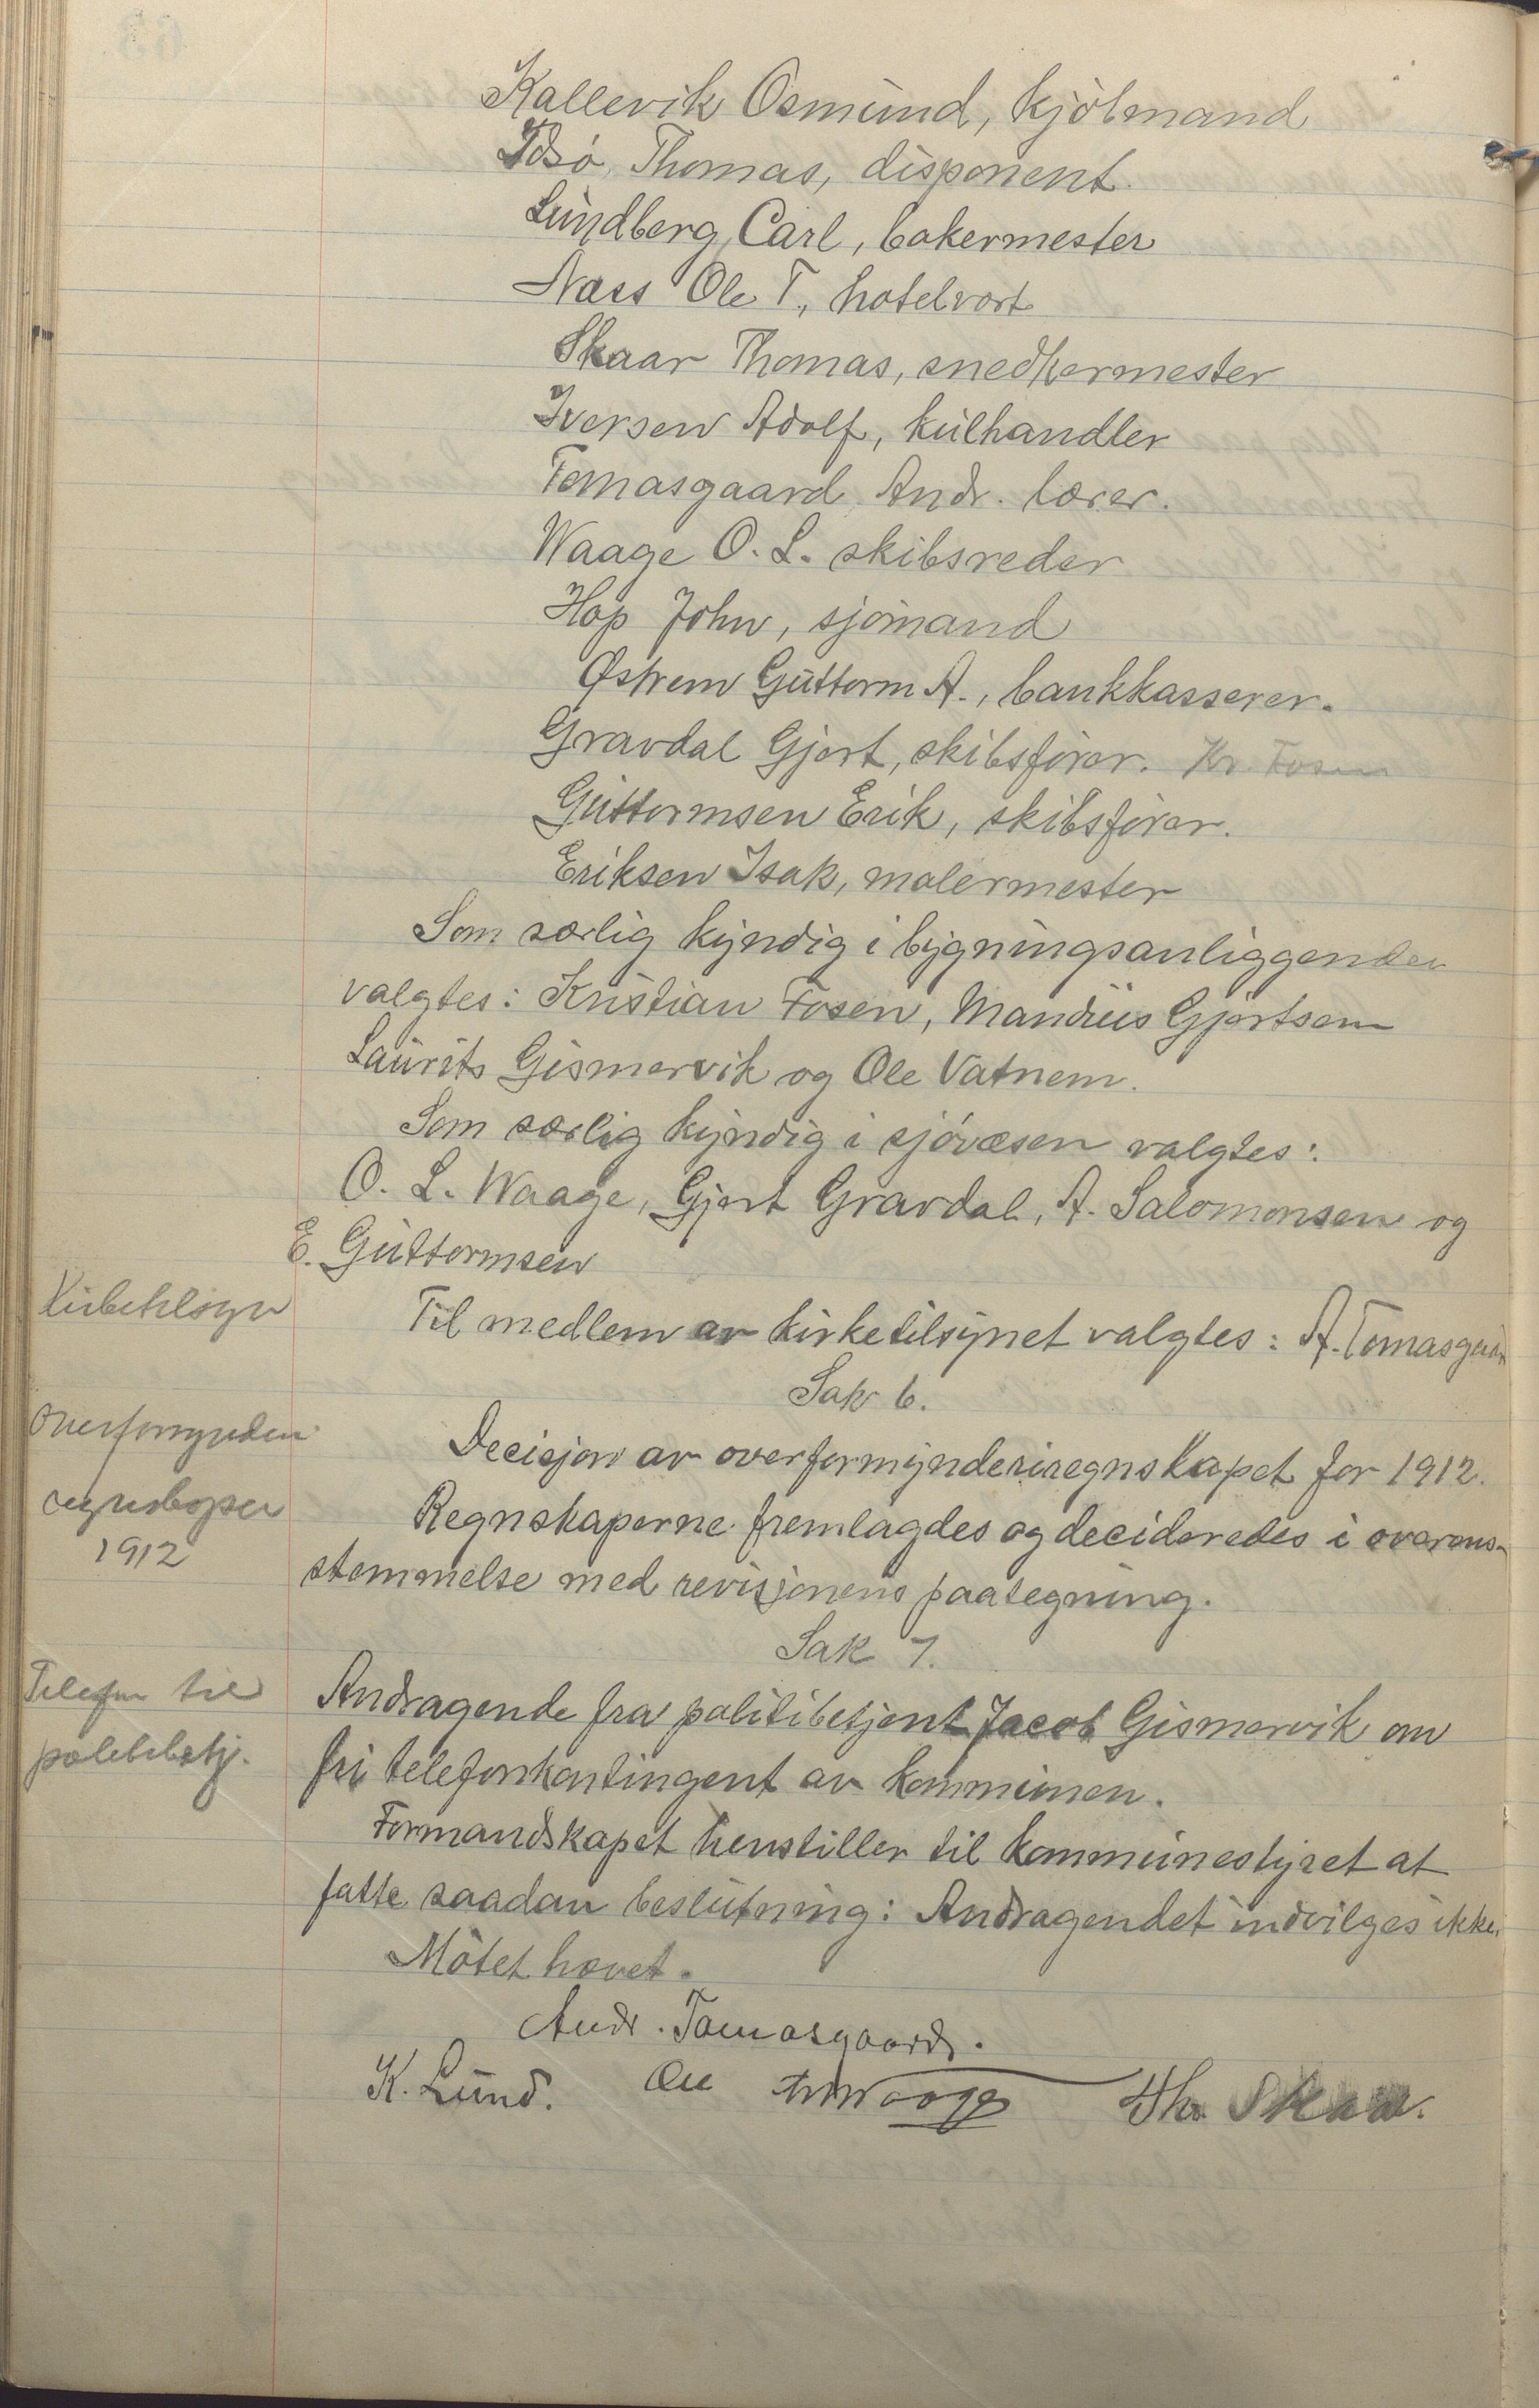 Kallevik Osmund, kjøbmand
Idsø, Thomas, disponent.
Lundberg, Carl, bakermester
Næss Ole T., hotelvært
Skaar Thomas, snedkermester
Iversen Adolf, kulhandler
Tomasgaard, Andr. lærer.
Waage O. L. skibsreder
Hop John, sjømand
Østrem Guttorm A., bankkasserer.
Gravdal Gjert, skibsfører. Kr. Fosen
Guttormsen Erik, skibsfører.
Eriksen Isak, malermester
Som særlig kyndig i bygningsanliggender
valgtes: Kristian Fosen, Mandius Gjertsen
Laurits Gismervik og Ole Vatnem.
Som særlig kyndig i sjøvæsen valgtes:
O. L. Waage, Gjert Gravdal, A. Salomonsen og
E. Guttormsen
Kirketilsyn
Til medlem av kirketilsynet valgtes: A. Tomasgaard
Sak 6.
Overformynderi
regnskaper
1912
Decisjon av overformynderiregnskapet for 1912.
Regnskaperne fremlagdes og decideredes i overens-
stemmelse med revisjonens paategning.
Sak 7.
Telefon til
politibetj.
Andragende fra politibetjent Jacob Gismervik om
fri telefonkontingent av kommunen.
Formandskapet henstiller til kommunestyret at
fatte saadan beslutning: Andragendet indvilges ikke.
Møtet hævet.
Andr. Tomasgaard.
K. Lund. Ole Waage Th. Skaar.